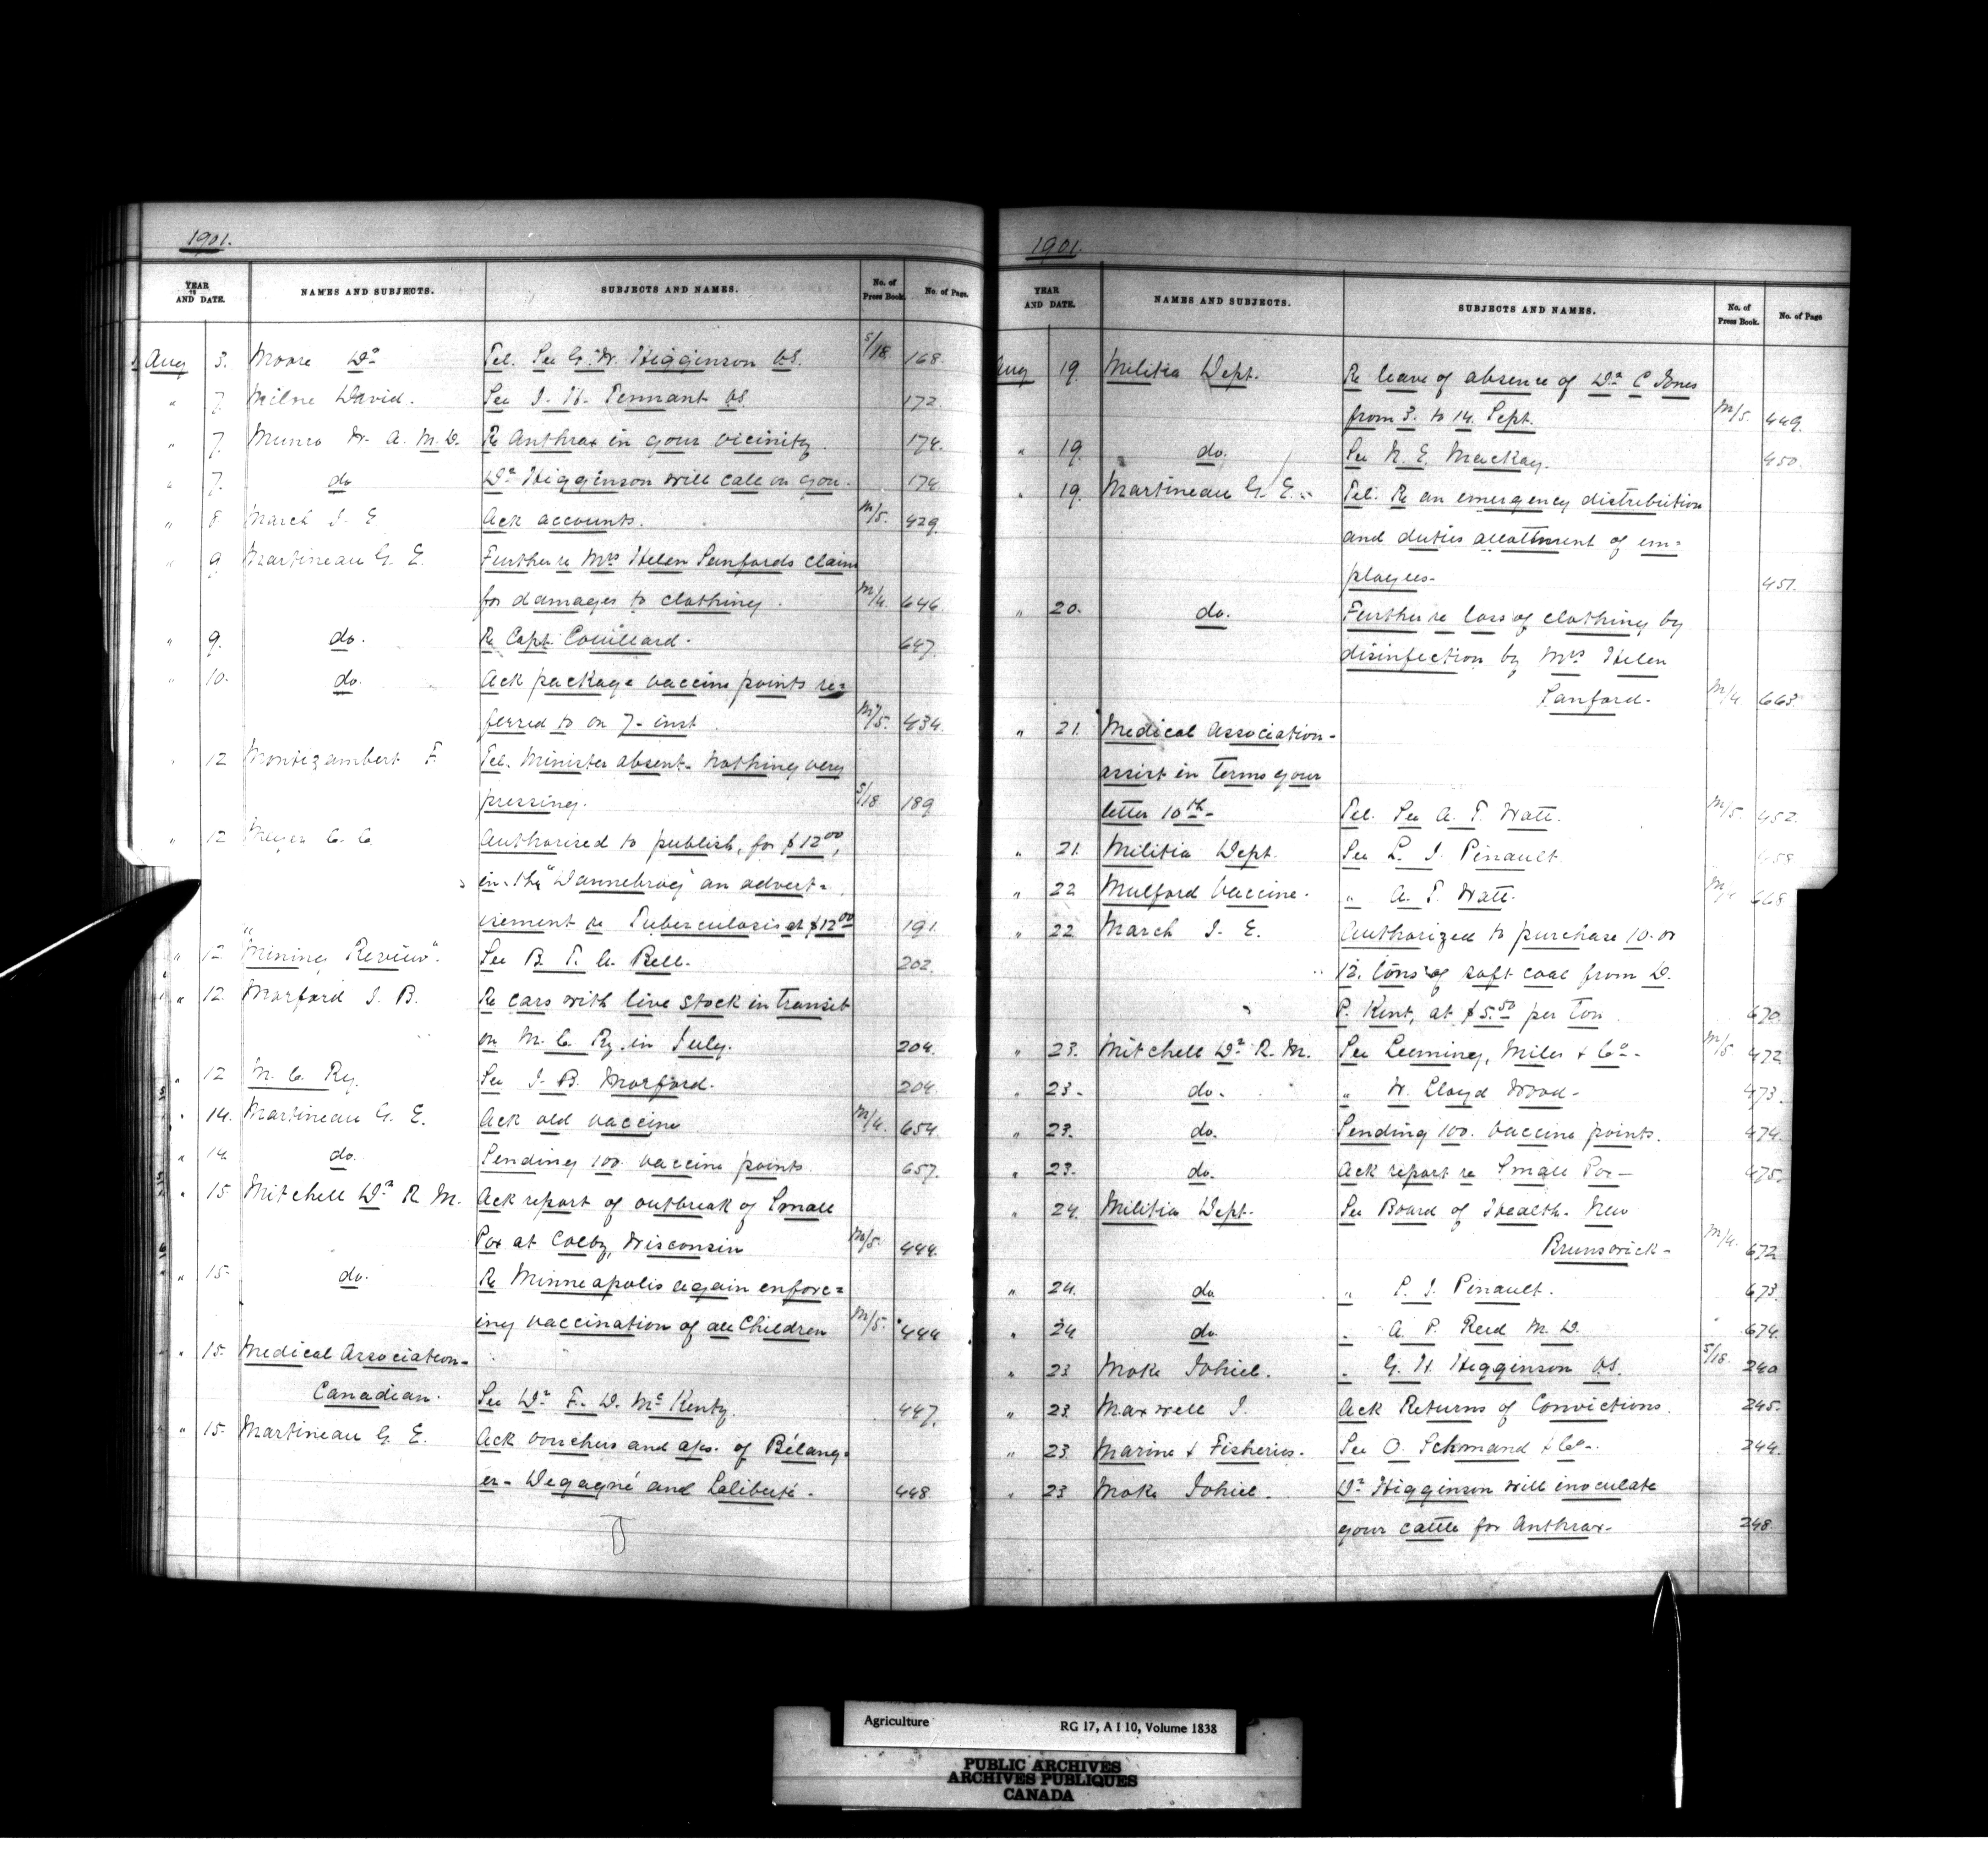 1901.
YEAR AND DATE. NAMES AND SUBJECTS. SUBJECTS AND NAMES. No. of Press Book. No. of Page.
Aug 3. Moore Dr Tel. See G. W. Higginson VS. S/18 168.
" 7. Milne David. See J. H. Tennant VS. 172.
" 7. Munro W. A. M.D. Re Anthrax in your vicinity 174.
" 7. do Dr Higginson will call on you. 174
" 8 March J. E. Ack accounts. M/5. 429.
" 9 Martineau G. E. Further re Mrs Helen Sanfords claim
for damages to clothing. M/4. 646.
" 9. do. Re Capt. Couillard. 647.
" 10. do. Ack package vaccine points re=
ferred to on 7- inst. M/5. 434.
" 12 Montizambert F. Tel. Minister absent. Nothing very
pressing. S/18. 189
" 12 Meyer C. C. Authorised to publish, for $12.00,
in the "Dannebrog" an advert=
isement re Tuberculosis at $12.00 191.
" 12. "Mining Review". See B. T. A. Bell. 202.
" 12. Morford J. B. Re cars with live stock in transit
on M. C. Ry. in July. 204.
" 12 M. C. Ry. See J. B. Morford. 204.
" 14. Martineau G. E. Ack old vaccine M/4. 654.
" 14. do. Sending 100 vaccine points. 657.
" 15. Mitchell Dr R. M. Ack report of outbreak of Small
Pox at Colby, Wisconsin M/5. 444.
" 15. do. Re Minneapolis again enforc=
ing vaccination of all Children M/5. 444
" 15. Medical Association-
Canadian. See Dr F. D. McKenty. 447.
" 15. Martineau G. E. Ack vouchers and aps. of Bélang=
er- Degagné and Laliberté. 448.
1901.
YEAR AND DATE. NAMES AND SUBJECTS. SUBJECTS AND NAMES. No. of Press Book. No. of Page
Aug 19. Militia Dept. Re leave of absence of Dr C Jones
from 3. to 14. Sept. M/5. 449.
" 19. do. See N. E. Mackay. 450.
" 19. Martineau G. E. Tel. Re an emergency distribution
and duties allotment of em=
ployees- 451.
" 20. do. Further re loss of clothing by
disinfection by Mrs Helen
Sanford. M/4 663.
" 21. Medical Association-
assist in terms your
letter 10th- Tel. See A. T. Watt. M/5. 452.
" 21. Militia Dept. See L. J. Pinault. 458
" 22 Mulford Vaccine. " A. T. Watt. 668
" 22 March J. E. Authorized to purchase 10. or
12. tons of soft coal from D.
P. Kent, at $5.50 per ton. 670.
" 23. Mitchell Dr R. M. See Leeming, Miles & Co- M/5. 472
" 23. do. " W. Lloyd Wood- 473.
" 23. do. Sending 100. vaccine points. 474.
" 23. do. Ack report re Small Pox- 475.
" 24. Militia Dept. See Board of Health. New
Brunswick- M/4. 672
" 24. do " L. J. Pinault. 673.
" 24 do. " A. P. Reid M.D. 674.
" 23 Moke Johiel. " G. W. Higginson VS. S/18. 240
" 23. Maxwell J. Ack Returns of Convictions. 245.
" 23 Marine & Fisheries. See O. Schmand & Co. 244.
" 23 Moke Johiel. Dr Higginson will inoculate
your cattle for Anthrax. 248.
Agriculture RG 17, A I 10, Volume 1838
PUBLIC ARCHIVES
ARCHIVES PUBLIQUES
CANADA